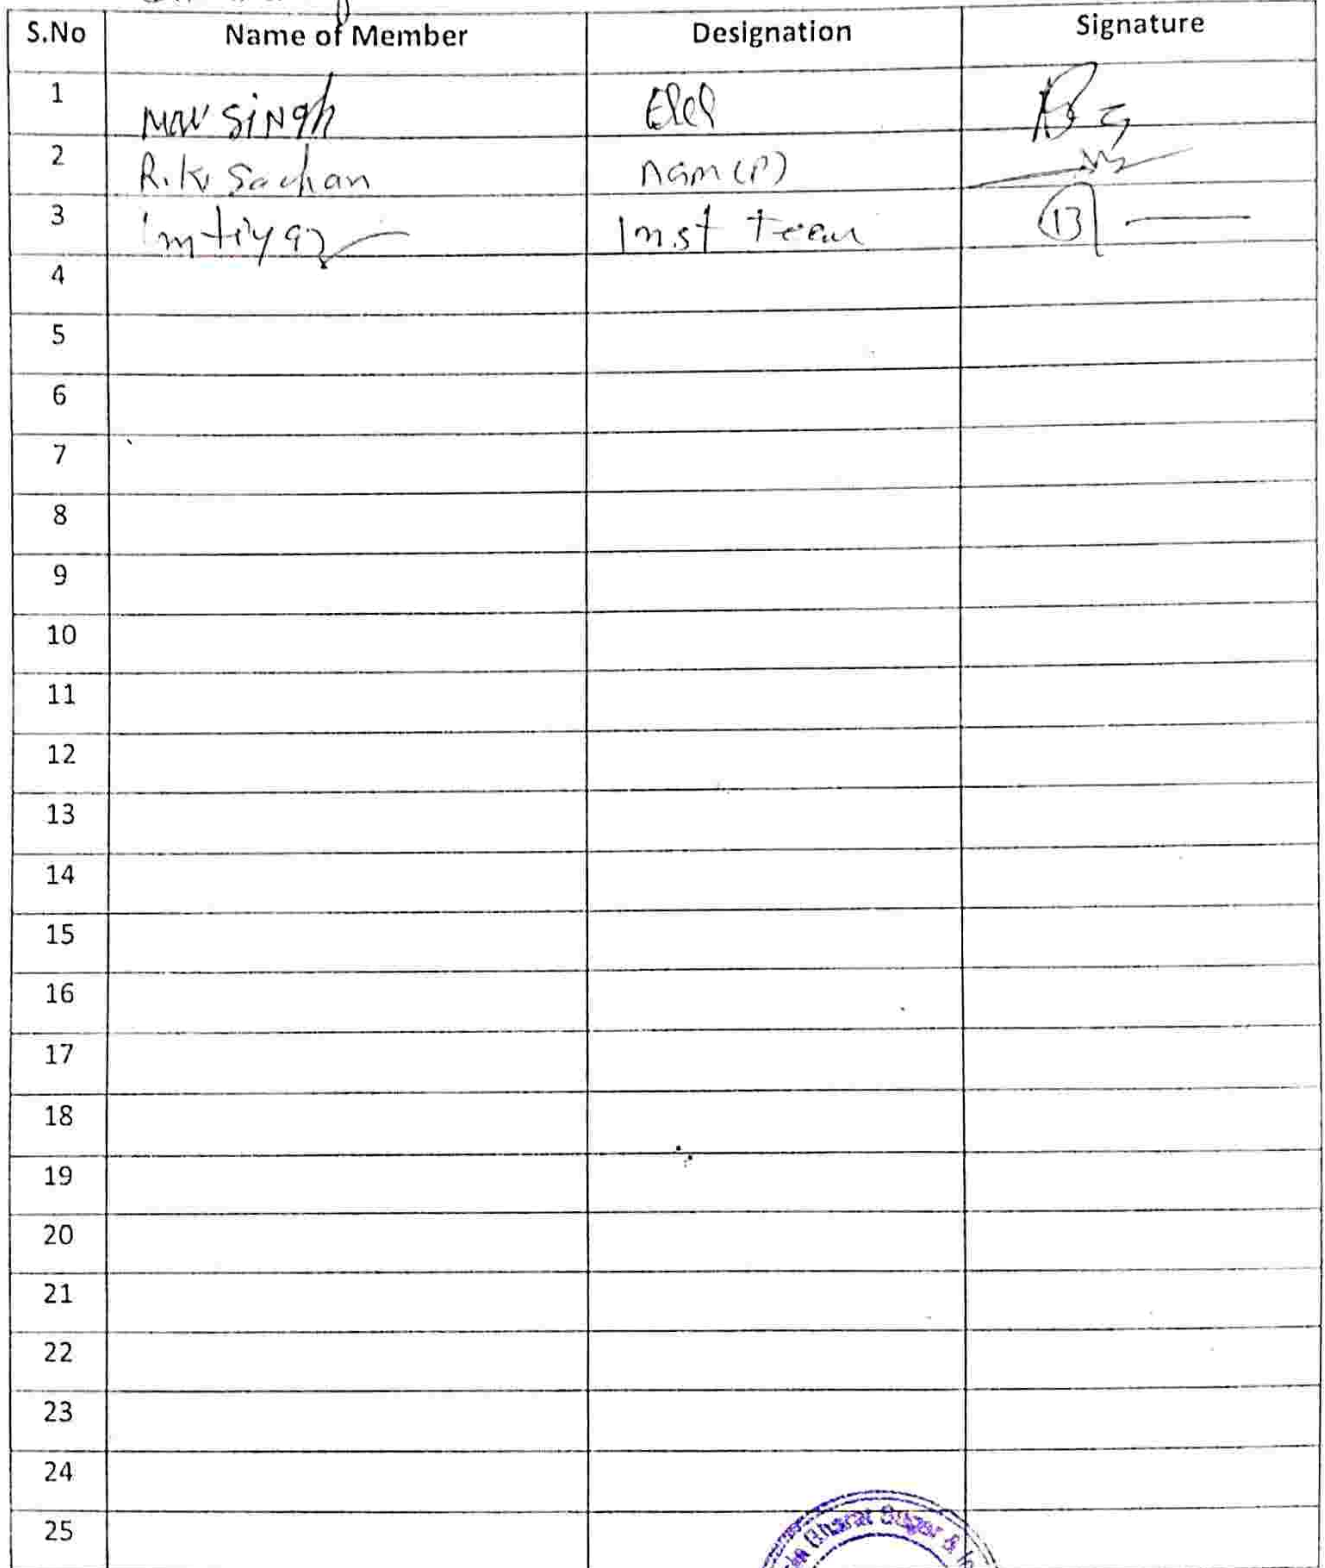 S.No Name of Member Designation Signature
1 Singh
2 R.K. Sachan
3 Imtiyaz Inst Team
4
5
6
7
8
9
10
11
12
13
14
15
16
17
18
19
20
21
22
23
24
25
Bharat Sugar &